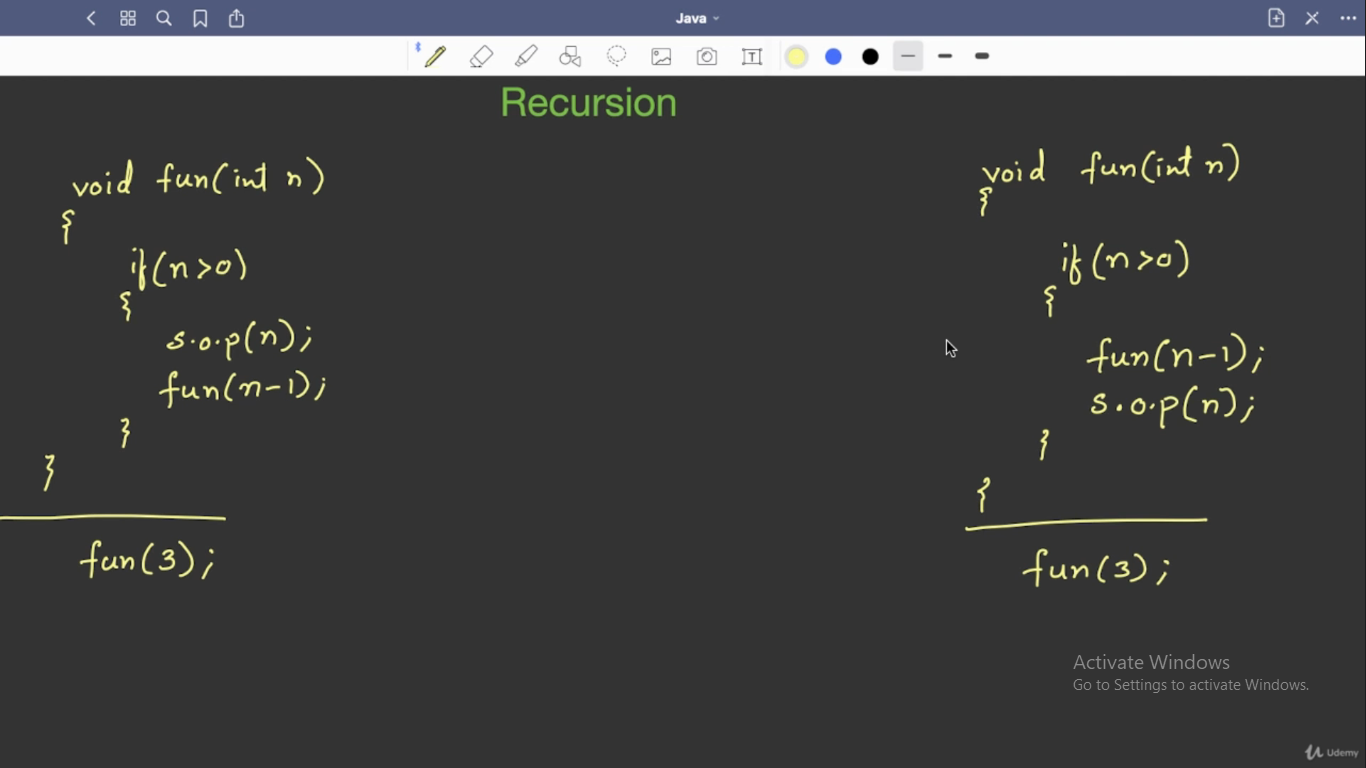 Java
Recursion
void fun(int n)
{
if(n>0)
{
s.o.p(n);
fun(n-1);
}
}
fun(3);
void fun(int n)
{
if(n>0)
{
fun(n-1);
s.o.p(n);
}
{
fun(3);
Activate Windows
Go to Settings to activate Windows.
Udemy